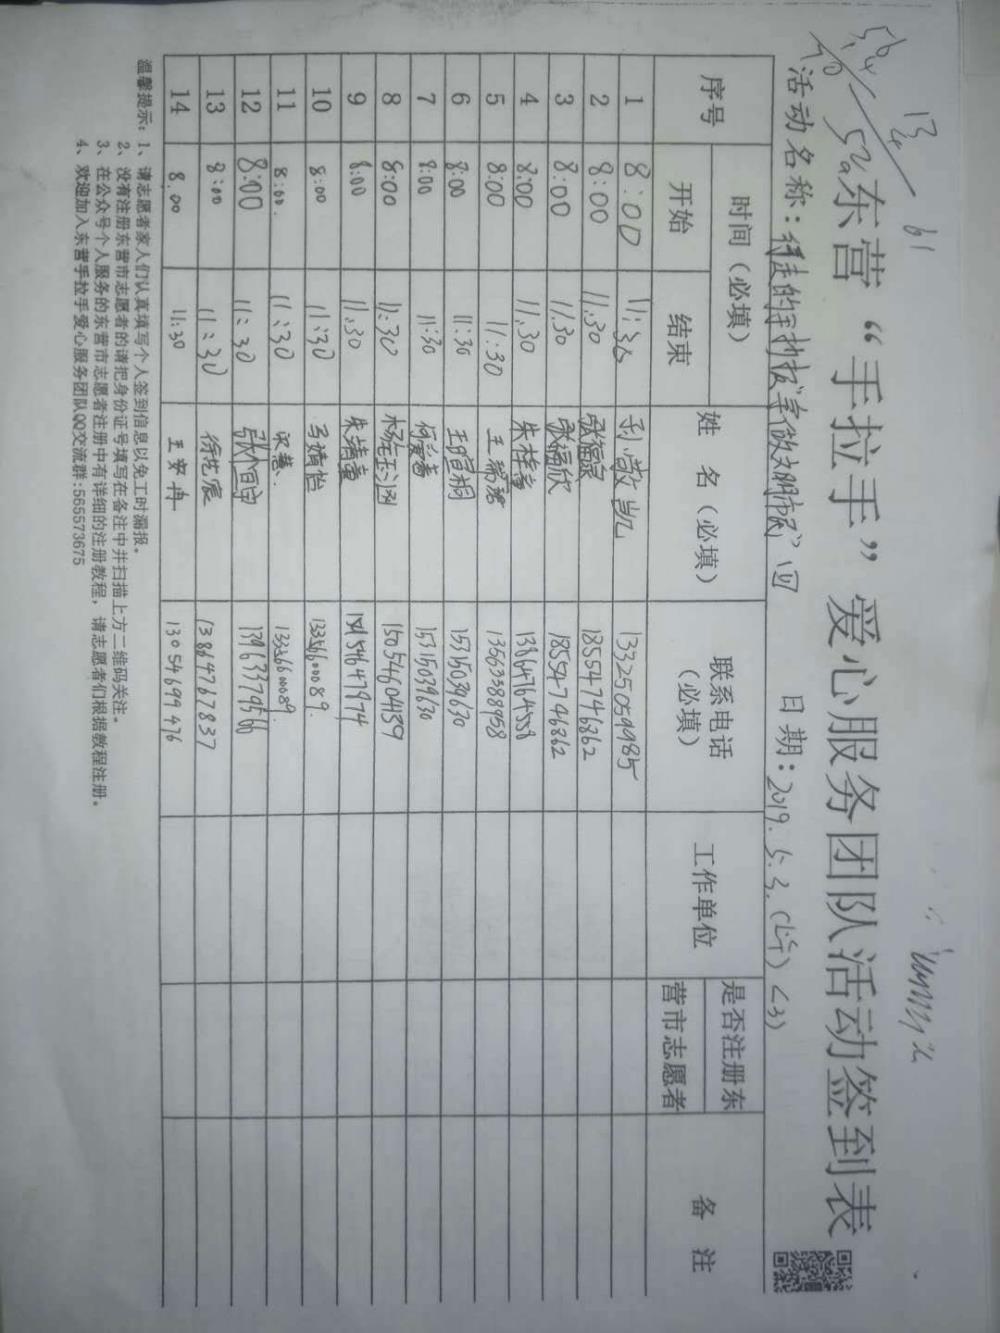 东营“手拉手”爱心服务团队活动签到表
活动名称：行走的手抄报“争做文明市民” 四 日期：2019.5.3.（上午）<3>
序号 时间（必填） 姓 名（必填） 联系电话（必填） 工作单位 是否注册东营市志愿者 备 注
开始 结束
1 8:00 11:30 凯 13325059985
2 8:00 11.30 18554746862
3 8:00 11.30 张福欣 18554746862
4 8:00 11.30 朱梓 13864764558
5 8:00 11:30 王瑞 13563388958
6 8:00 11:30 王暄桐 15315039630
7 8:00 11:30 15315039630
8 8:00 11:30 杨 涵 15054604139
9 8:00 11.30 朱婧 15154647974
10 8:00 11:30 马婧怡 13356600089.
11 8:00. 11:30 宋慧. 13356600089.
12 8:00 11:30 13963379566
13 8:00 11:30 徐 宸 13864767837
14 8.00 11:30 王 冉 13054699476
温馨提示：1、请志愿者家人们认真填写个人签到信息以免工时漏报。
2、没有注册东营市志愿者的请把身份证号填写在备注中并扫描上方二维码关注。
3、在公众号个人服务的东营市志愿者注册中有详细的注册教程，请志愿者们根据教程注册。
4、欢迎加入东营手拉手爱心服务团队QQ交流群:565573675